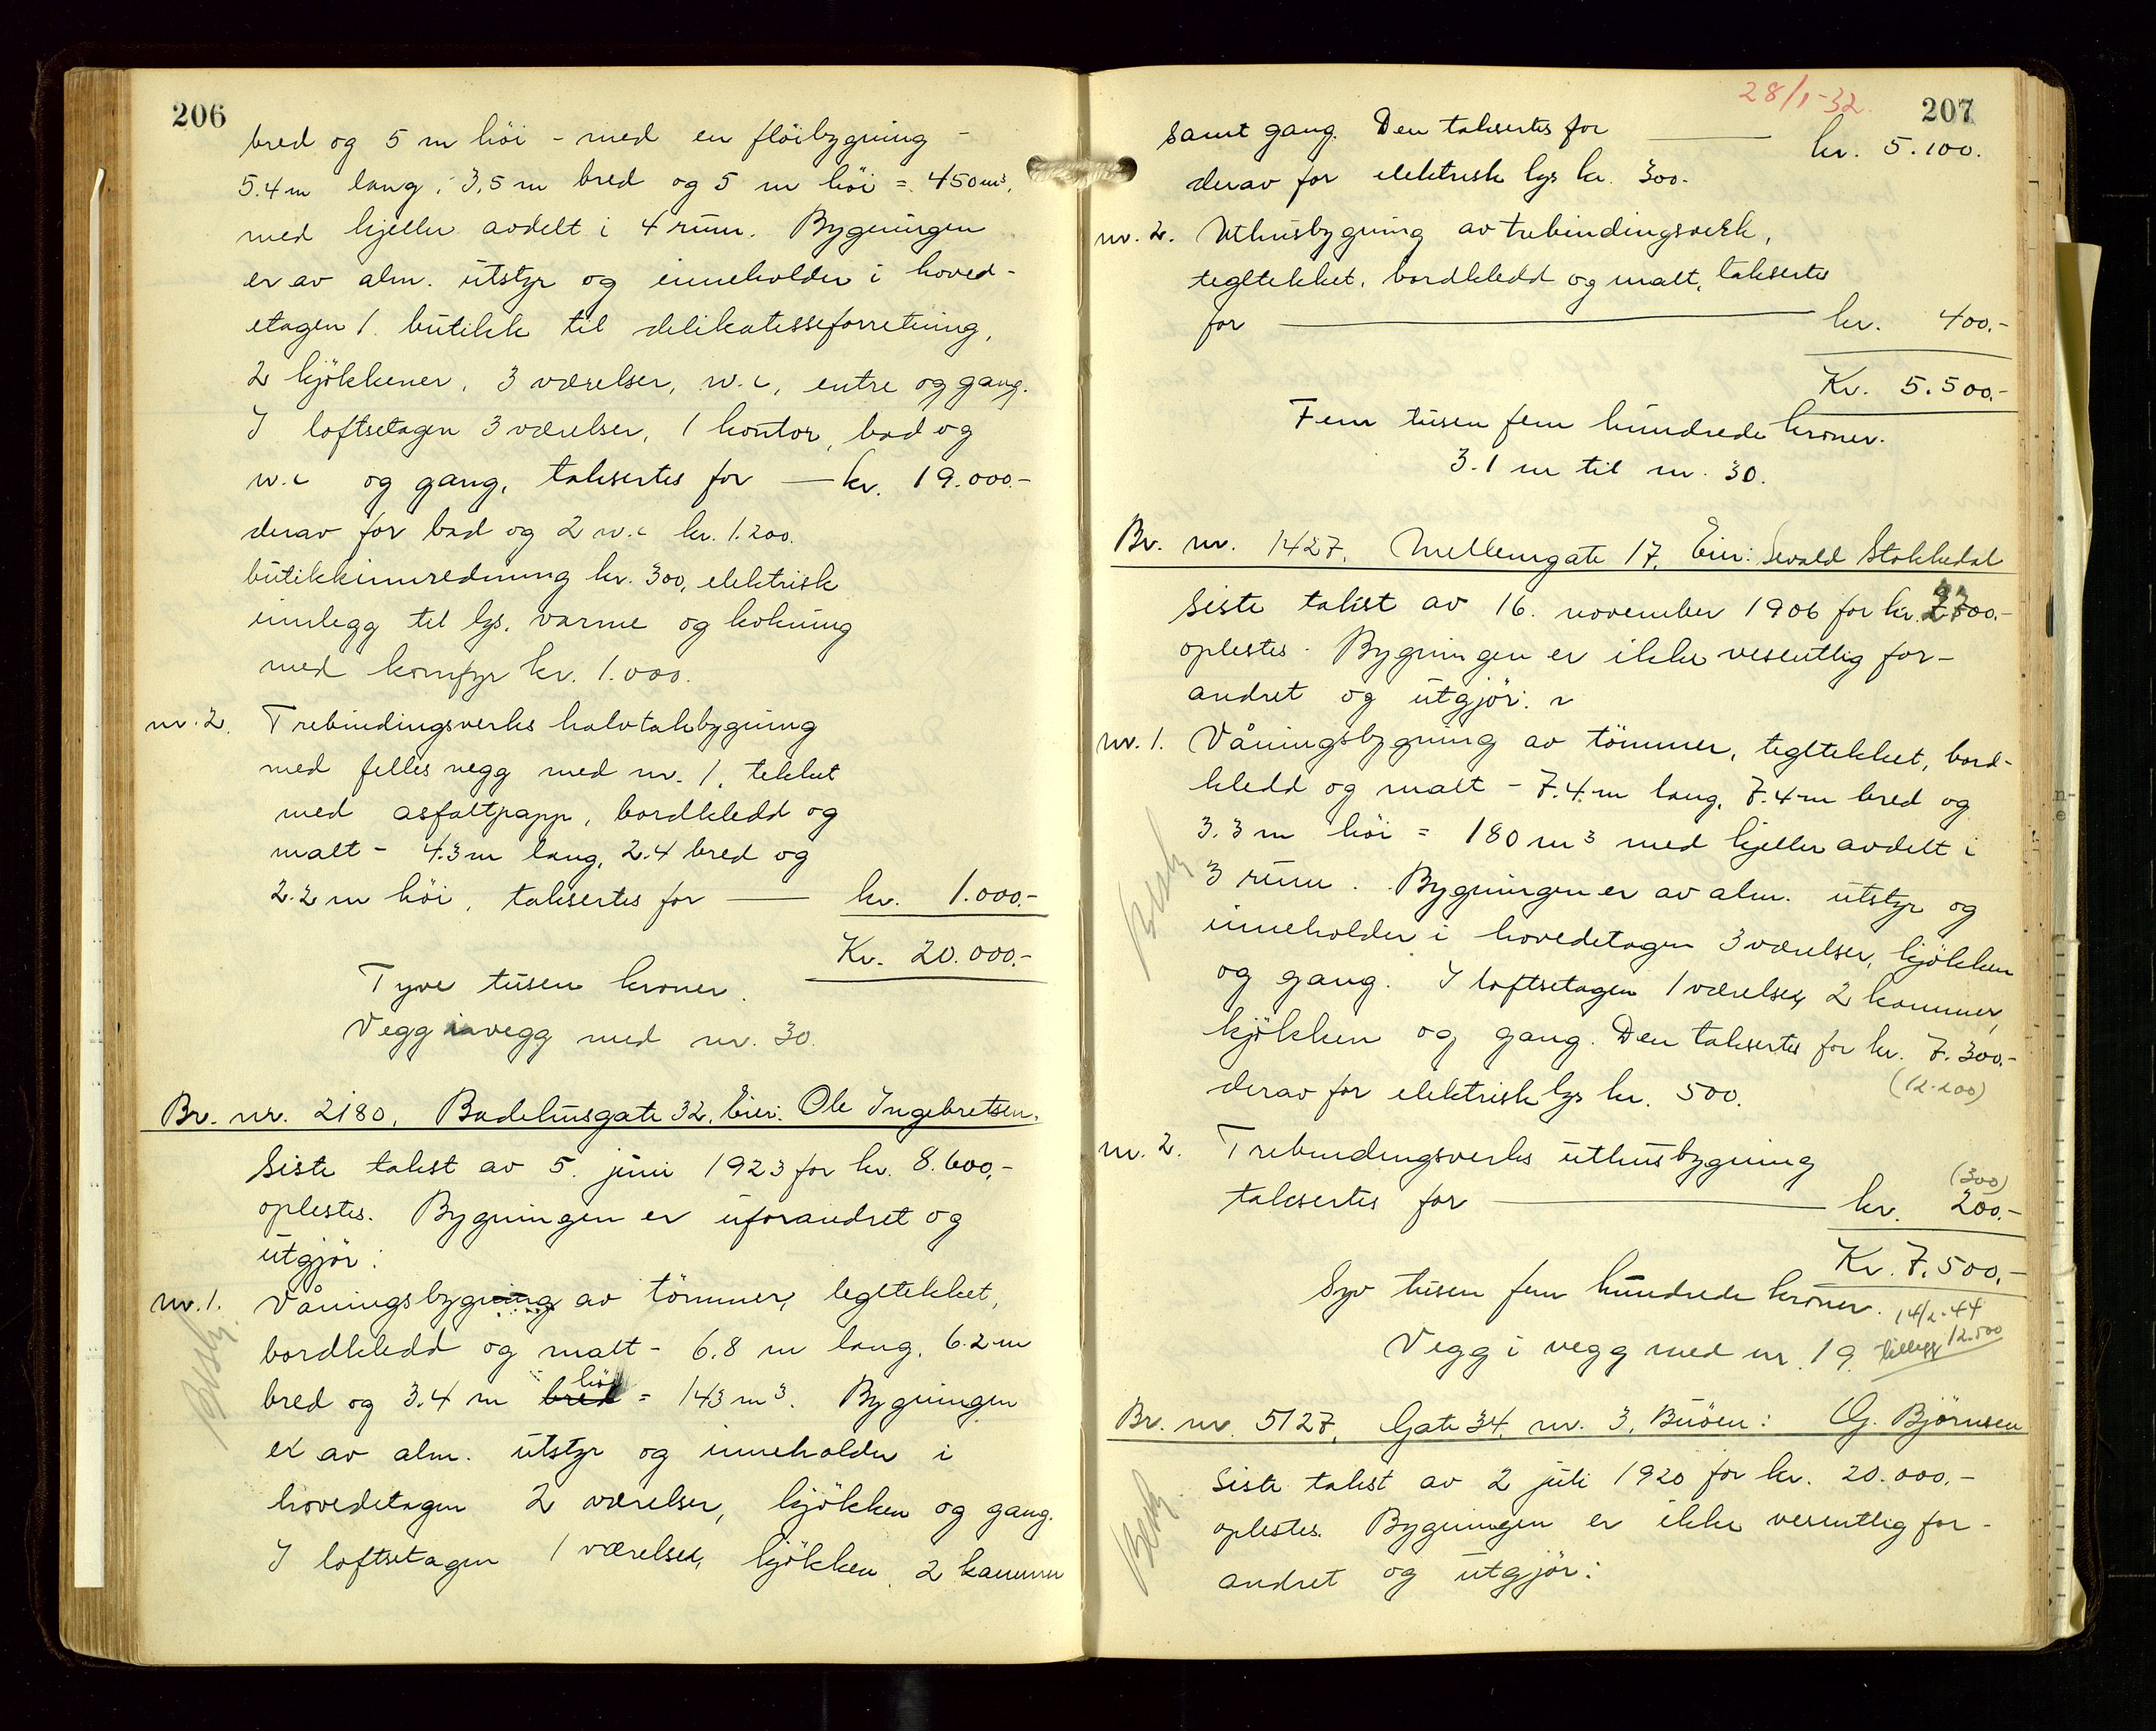 206
bred og 5 m höi - med en flöibygning -
5.4 m lang, 3,5 m bred og 5 m höi = 450 m³,
med kjeller avdelt i 4 rum. Bygningen
er av alm. utstyr og inneholder i hoved-
etagen 1 butikk til delikatesseforretning,
2 kjökkener, 3 værelser, w.c, entre og gang.
I loftsetagen 3 værelser, 1 kontor, bad og
w.c og gang, taksertes for — kr. 19.000.-
derav for bad og 2 w.c kr. 1.200.
butikkinnredning kr. 300, elektrisk
innlegg til lys, varme og kokning
med komfyr kr. 1.000.
nr. 2. Trebindingsverks halvtakbygning
med felles vegg med nr. 1, tekket
med asfaltpapp, bordkledd og
malt - 4.3 m lang, 2.4 bred og
2.2 m höi, taksertes for — kr. 1.000.-
Kr. 20.000.-
Tyve tusen kroner.
Vegg i vegg med nr. 30.
Br. nr. 2180, Badehusgate 32. Eier: Ole Ingebretsen.
Siste takst av 5. juni 1923 for kr. 8.600,-
oplestes. Bygningen er uforandret og
utgjör:
nr. 1. Våningsbygning av tömmer, tegltekket,
bordkledd og malt - 6.8 m lang, 6.2 m
höi
bred og 3.4 m bred = 143 m³. Bygningen
er av alm. utstyr og inneholder i
hovedetagen 2 værelser, kjökken og gang.
I loftsetagen 1 værelse, kjökken, 2 kammer
Besk.
28/1-32.
207
samt gang. Den taksertes for — kr. 5.100.
derav for elektrisk lys kr. 300.-
nr. 2. Uthusbygning av trebindingsverk,
tegltekket, bordkledd og malt, taksertes
for — kr. 400.-
Kr. 5.500.-
Fem tusen fem hundrede kroner.
3.1 m til nr. 30.
Br. nr. 1427, Mellemgate 17, Eier: Sevald Stokkedal
Siste takst av 16. november 1906 for kr.
oplestes. Bygningen er ikke vesentlig for-
andret og utgjör:
nr. 1. Våningsbygning av tömmer, tegltekket, bord-
kledd og malt - 7.4 m lang, 7.4 m bred og
3.3 m höi = 180 m³ med kjeller avdelt i
3 rum. Bygningen er av alm. utstyr og
inneholder i hovedetagen 3 værelser, kjökken
og gang. I loftsetagen 1 værelse, 2 kammer,
kjökken og gang. Den taksertes for kr. 7.300.-
(12.200)
derav for elektrisk lys kr. 500.
nr. 2. Trebindingsverks uthusbygning
(300)
taksertes for — kr. 200.-
Kr. 7.500.-
Syv tusen fem hundrede kroner. 14/2-44
Vegg i vegg med nr. 19. tillegg 12.500
Br. nr. 5127, Gate 34, nr. 3, Buöen: G. Björnsen
Siste takst av 2 juli 1920 for kr. 20.000.-
oplestes. Bygningen er ikke vesentlig for-
andret og utgjör:
Besk
Besk